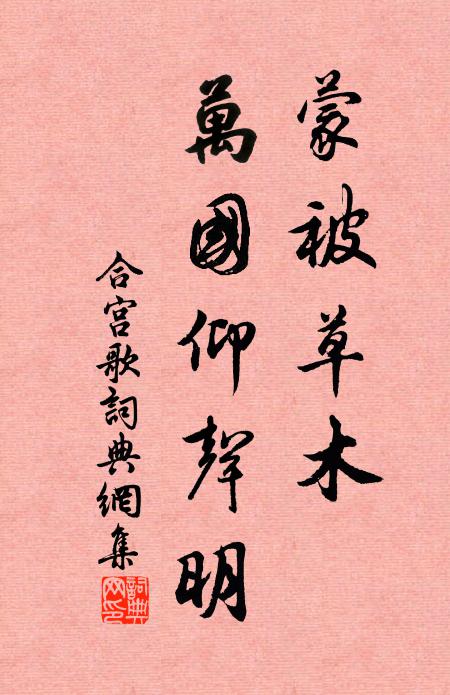 蒙被草木
萬國仰聲明
合宮歌詞典網集
詞典網印